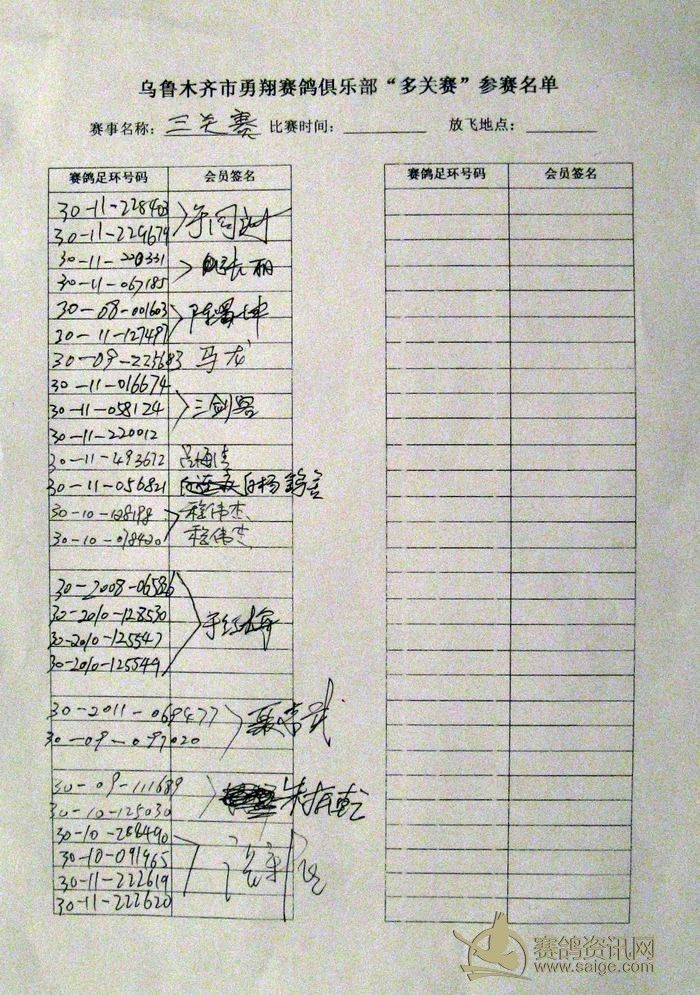 乌鲁木齐市勇翔赛鸽俱乐部“多关赛”参赛名单
赛事名称：三关赛 比赛时间： 放飞地点：
赛鸽足环号码 会员签名 赛鸽足环号码 会员签名
30-11-228403
30-11-229679
30-11-200331
30-11-067185 长丽
30-08-001603
30-11-127497
30-09-225683 马龙
30-11-016674
30-11-058124 三剑客
30-11-220012
30-11-493672
30-11-056821
30-10-128198 程伟杰
30-10-078420 程伟杰
30-2008-06586
30-2010-128530
30-2010-125547
30-2010-125549
30-2011-069477
30-09-097020
30-09-111689
30-10-125030
30-10-288490
30-10-091965
30-11-222619
30-11-222620
赛鸽资讯网
www.saige.com